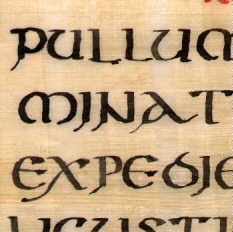 PULLUM
MINAT
EXPEDIE